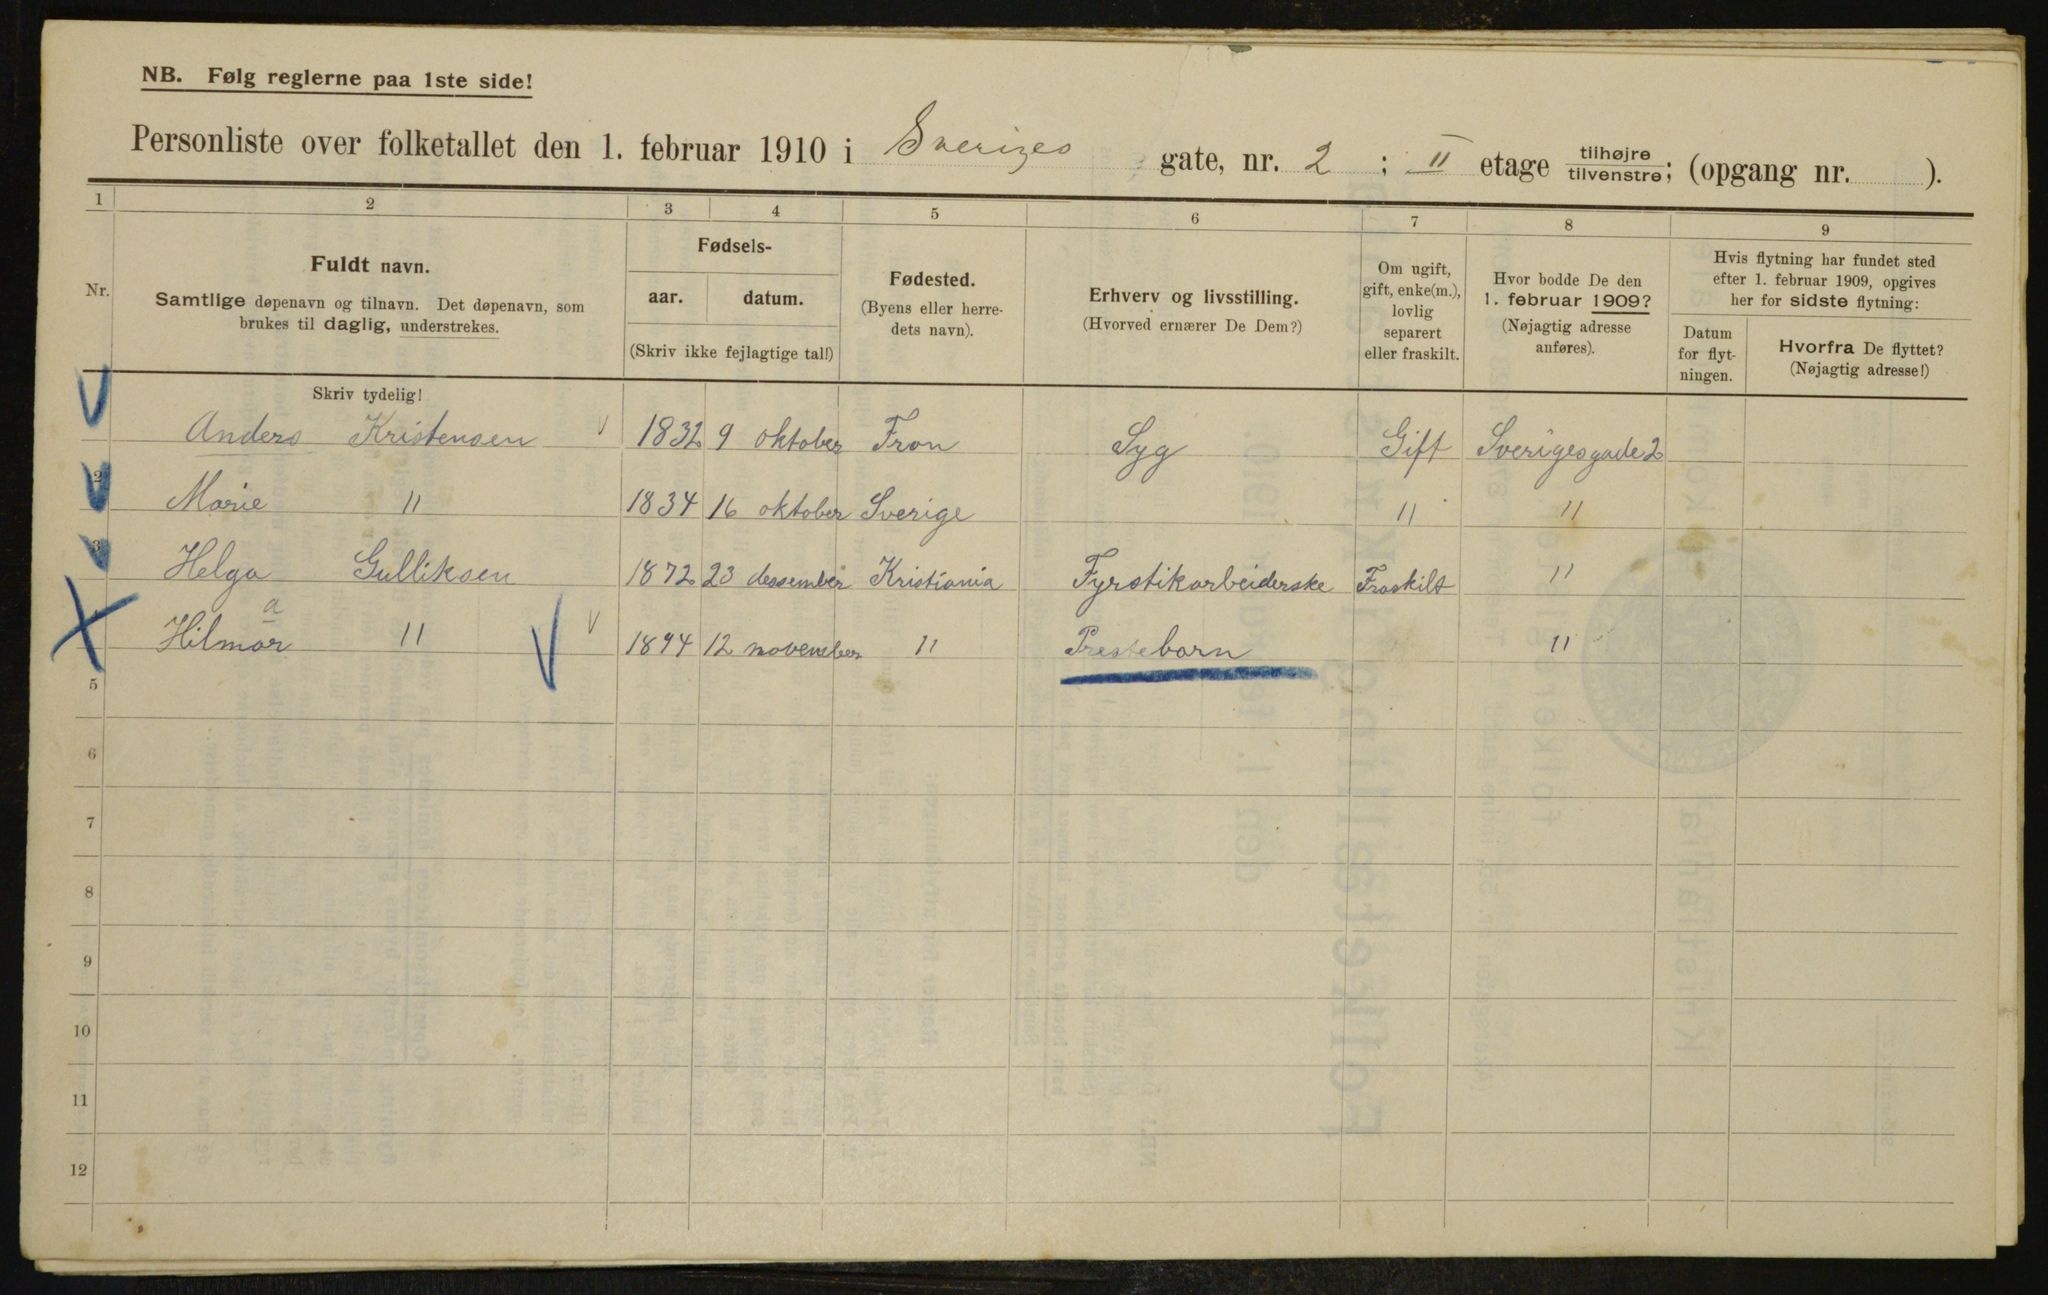 NB. Følg reglerne paa 1ste side!
Personliste over folketallet den 1. februar 1910 i Sveriges gate, nr. 2 ; II etage tilhøjre/tilvenstre; (opgang nr. ).
1 2 3 4 5 6 7 8 9
Nr.
Fuldt navn.
Samtlige døpenavn og tilnavn. Det døpenavn, som
brukes til daglig, understrekes.
Skriv tydelig!
Fødsels-
aar. datum.
(Skriv ikke fejlagtige tal!)
Fødested.
(Byens eller herre-
dets navn).
Erhverv og livsstilling.
(Hvorved ernærer De Dem?)
Om ugift,
gift, enke(m.),
lovlig
separert
eller fraskilt.
Hvor bodde De den
1. februar 1909?
(Nøjagtig adresse
anføres).
Hvis flytning har fundet sted
efter 1. februar 1909, opgives
her for sidste flytning:
Datum
for flyt-
ningen.
Hvorfra De flyttet?
(Nøjagtig adresse!)
Anders Kristensen 1832 9 oktober Fron Syg Gift Sverigesgade 2
2 Marie " 1834 16 oktober Sverige " "
3 Helga Gulliksen 1872 23 dessember Kristiania Fyrstikarbeiderske Fraskilt "
a
Hilmar " 1894 12 november " Prestebarn "
5
6
7
8
9
10
11
12